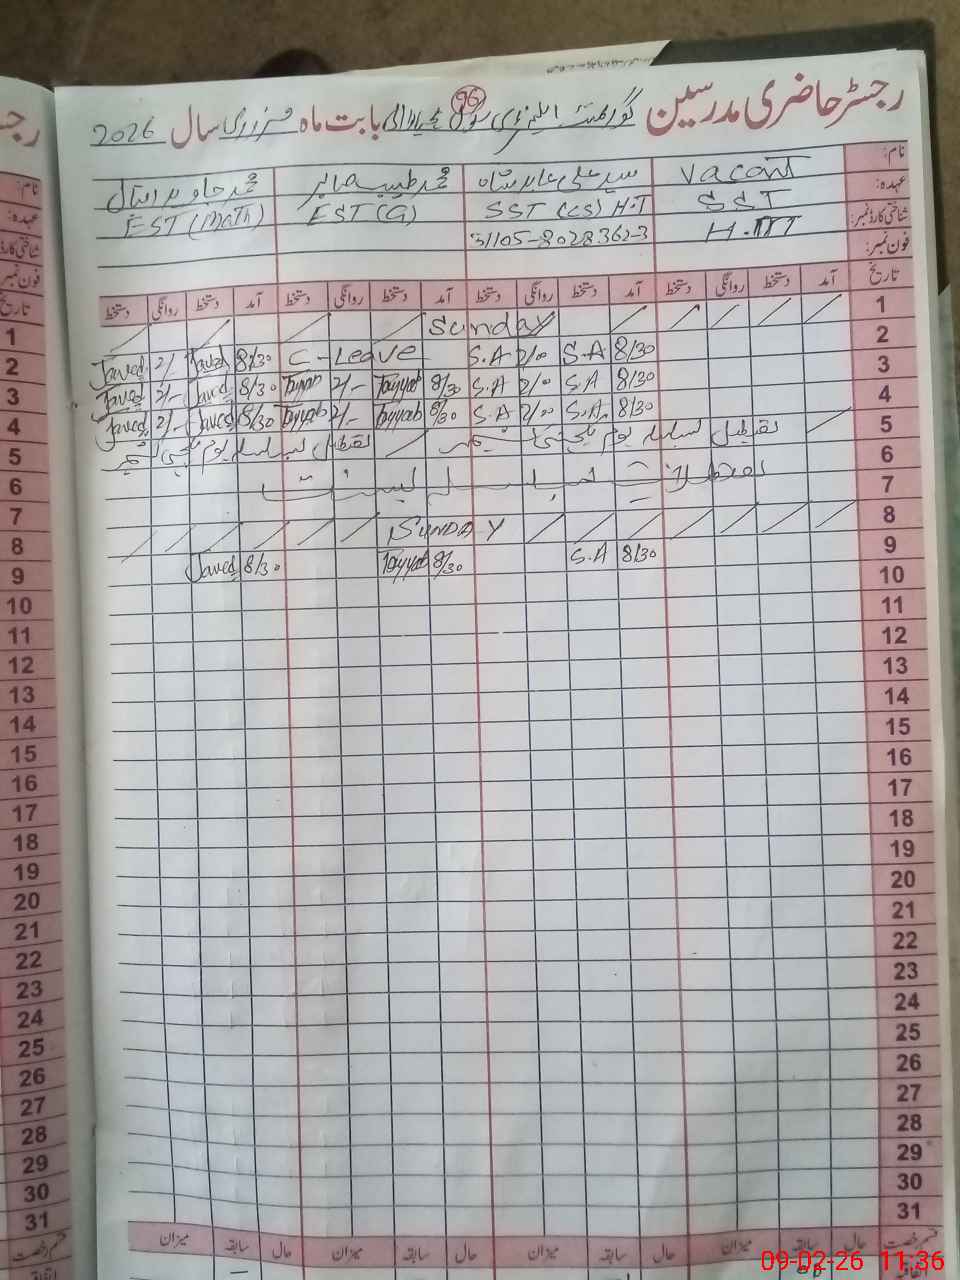 رجسٹر حاضری مدرسین گورنمنٹ ایلیمنٹری سکول 96 بابت ماہ فروری سال 2026
نام: Vacant سید علی عابد شاہ محمد طیب صابر محمد جاوید اقبال
عہدہ: SST SST (CS) H.T EST (G) EST (Math)
شناختی کارڈ نمبر: H.M 31105-8028362-3
فون نمبر:
تاریخ آمد دستخط روانگی دستخط آمد دستخط روانگی دستخط آمد دستخط روانگی دستخط آمد دستخط روانگی دستخط
1 Sunday
2 8/30 S.A 2/00 S.A C-Leave 8/30 Javed 2/- Javed
3 8/30 S.A 2/00 S.A 8/30 Tayyab 2/- Tayyab 8/30 Javed 2/- Javed
4 8/30 S.A 2/00 S.A 8/30 Tayyab 2/- Tayyab 8/30 Javed 2/- Javed
5 تعطیل بسلسلہ یوم یکجہتی کشمیر تعطیل بسلسلہ یوم یکجہتی کشمیر
6
7
8 SUNDAY
9 8/30 S.A 8/30 Tayyab 8/30 Javed
10
11
12
13
14
15
16
17
18
19
20
21
22
23
24
25
26
27
28
29
30
31
قسم رخصت حال سابقہ میزان حال سابقہ میزان حال سابقہ میزان حال سابقہ میزان
اتفاقیہ
09-02-26 11:36